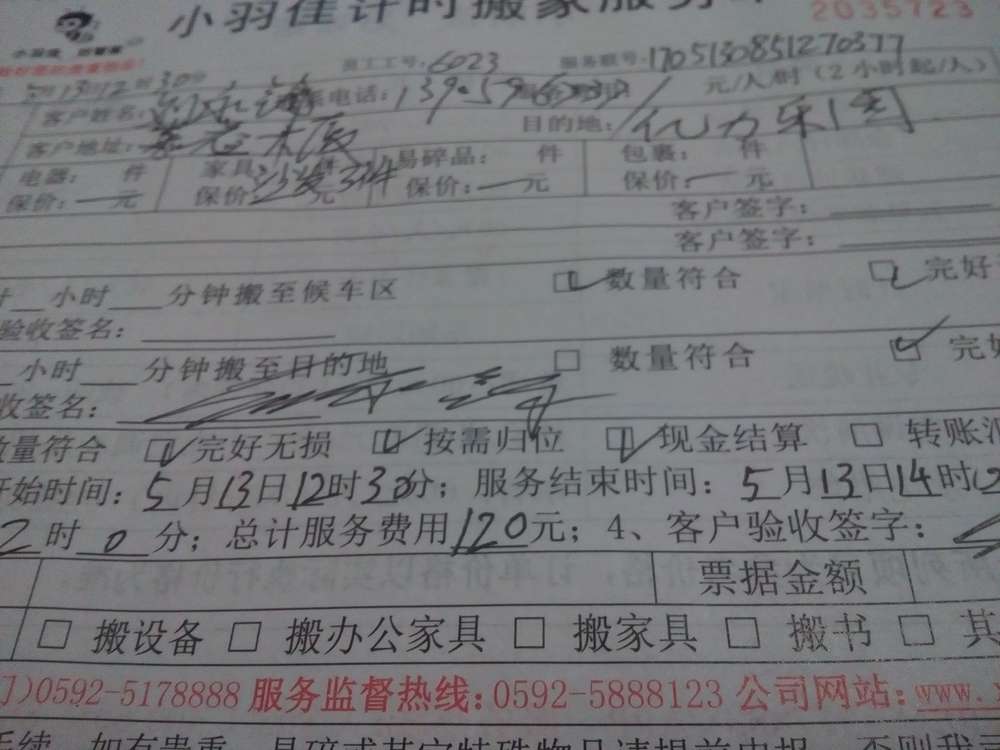 小羽佳计时搬家服务
2035723
员工工号:6023 服务联号:1705130851270377
5月13日12时30分 元/人/时(2小时起/人)
客户姓名: 系电话:139
客户地址: 目的地:亿力乐园
电器: 件 家具 沙发3件 易碎品: 件 包裹: 件
保价:一元 保价 元 保价:一元 保价:一元
客户签字:
客户签字:
时 小时 分钟搬至候车区 数量符合 完好
验收签名:
小时 分钟搬至目的地 数量符合 完好
收签名:
数量符合 完好无损 按需归位 现金结算 转账汇
开始时间:5月13日12时30分;服务结束时间:5月13日14时
2时0分;总计服务费用120元;4、客户验收签字:
票据金额
搬设备 搬办公家具 搬家具 搬书 其
门)0592-5178888 服务监督热线:0592-5888123 公司网站:www.
手续,如有贵重、易碎或其它特殊物品请提前申报,否则我司